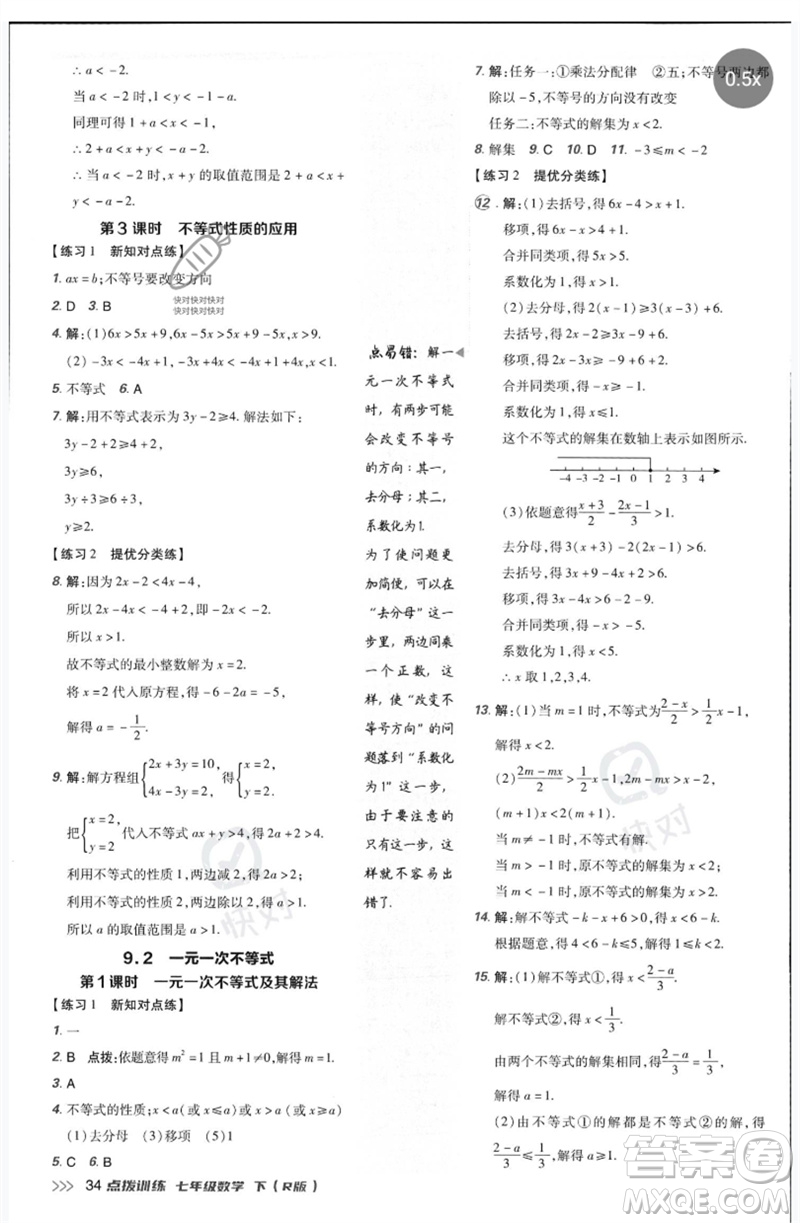 ∴ a < -2.
当 a < -2 时, 1 < y < -a.
同理可得 1 + a < x < -1.
∴ 2 + a < x + y < -a - 1.
∴ 当 a < -2 时, x + y 的取值范围是 2 + a < x +
y < -a - 1.
第 3 课时 不等式性质的应用
【练习 1 新知对点练】
1. ax = b; 不等号要改变方向
快对快对快对
快对快对快对
2. D 3. B
4. 解: (1) 6x > 5x + 9, 6x - 5x > 9, x > 9.
(2) -3x < -4x + 1, -3x + 4x < -4x + 1 + 4x, x < 1.
5. 不等式 6. A
7. 解: 用不等式表示为 3y - 2 ≥ 4. 解法如下:
3y - 2 + 2 ≥ 4 + 2,
3y ≥ 6,
3y ÷ 3 ≥ 6 ÷ 3,
y ≥ 2.
【练习 2 提优分类练】
8. 解: 因为 2x - 2 < 4x - 4,
所以 2x - 4x < -4 + 2, 即 -2x < -2.
所以 x > 1.
故不等式的最小整数解为 x = 2.
将 x = 2 代入原方程, 得 -6 - 2a = -5,
解得 a = -1/2.
9. 解: 解方程组 {2x + 3y = 10, 4x - 3y = 2, 得 {x = 2, y = 2.
把 {x = 2, y = 2 代入不等式 ax + y > 4, 得 2a + 2 > 4.
利用不等式的性质 1, 两边减 2, 得 2a > 2.
利用不等式的性质 2, 两边除以 2, 得 a > 1.
即 a 的取值范围是 a > 1.
9.2 一元一次不等式
第 1 课时 一元一次不等式及其解法
【练习 1 新知对点练】
1. 一
2. B 点拨: 依题意得 m² = 1 且 m + 1 ≠ 0, 解得 m = 1.
3. A
4. 不等式的性质; x < a (或 x ≤ a 或 x > a 或 x ≥ a)
(1) 去分母 (3) 移项 (5) 1
5. C 6. B
>>> 34 点拨训练 七年级数学 下 (R版)
点易错: 解一
元一次不等式
时, 有两步可能
会改变不等号
的方向: 其一,
去分母; 其二,
系数化为1.
为了使问题更
加简便, 可以在
“去分母”这一
步里, 两边同乘
一个正数, 这
样, 使“改变不
等号方向”的问
题落到“系数化
为1”这一步,
由于要注意的
只有这一步, 这
样就不容易出
错了.
0.5x
7. 解: 任务一: ①乘法分配律 ②五; 不等号两边都
除以 -5, 不等号的方向没有改变
任务二: 不等式的解集为 x < 2.
8. 解集 9. C 10. D 11. -3 ≤ m < -2
【练习 2 提优分类练】
12. 解: (1) 去括号, 得 6x - 4 > x + 1.
移项, 得 6x - x > 4 + 1.
合并同类项, 得 5x > 5.
系数化为 1, 得 x > 1.
(2) 去括号, 得 2x - 2 ≥ 3x - 9 + 6.
移项, 得 2x - 3x ≥ -9 + 6 + 2.
合并同类项, 得 -x ≥ -1.
系数化为 1, 得 x ≤ 1.
这个不等式的解集在数轴上表示如图所示.
-4 -3 -2 -1 0 1 2 3 4
(3) 依题意得 (x + 3)/2 - (2x - 1)/3 > 1.
去分母, 得 3(x + 3) - 2(2x - 1) > 6.
去括号, 得 3x + 9 - 4x + 2 > 6.
移项, 得 3x - 4x > 6 - 2 - 9.
合并同类项, 得 -x > -5.
系数化为 1, 得 x < 5.
∴ x 取 1, 2, 3, 4.
13. 解: (1) 当 m = 1 时, 不等式为 (2 - x)/2 > 1/2 x - 1,
解得 x < 2.
(2) (2m - mx)/2 > 1/2 x - 1, 2m - mx > x - 2,
(m + 1)x < 2(m + 1).
当 m ≠ -1 时, 不等式有解.
当 m > -1 时, 原不等式的解集为 x < 2;
当 m < -1 时, 原不等式的解集为 x > 2.
14. 解: 解不等式 -k - x + 6 > 0, 得 x < 6 - k.
根据题意, 得 4 < 6 - k ≤ 5, 解得 1 ≤ k < 2.
15. 解: (1) 解不等式①, 得 x < (2 - a)/3.
解不等式②, 得 x < 1/3.
由两个不等式的解集相同, 得 (2 - a)/3 = 1/3,
解得 a = 1.
(2) 由不等式①的解都是不等式②的解, 得
(2 - a)/3 ≤ 1/3, 解得 a ≥ 1.
快对
快对
答案圈
MXQE.COM